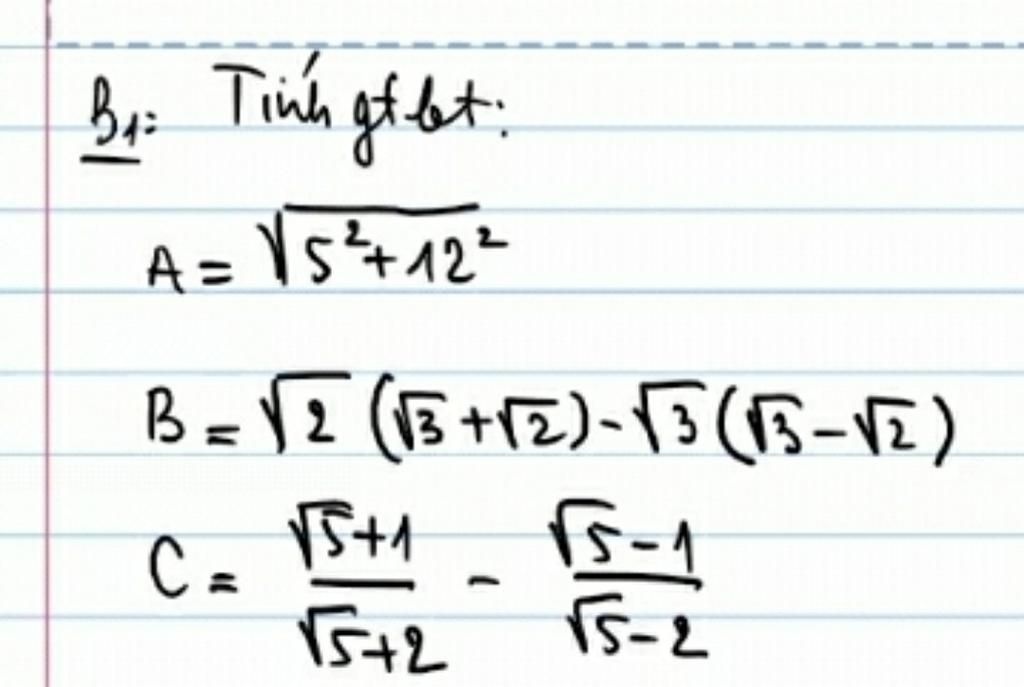 B1: Tính gt bt:
A = √(5²+12²)
B = √2 (√3 + √2) - √3 (√3 - √2)
C = (√5+1)/(√5+2) - (√5-1)/(√5-2)